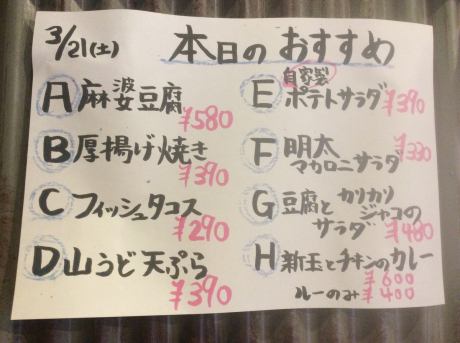 3/21(土) 本日のおすすめ
A 麻婆豆腐
¥580
B 厚揚げ焼き
¥390
C フィッシュタコス
¥290
D 山うど天ぷら
¥390
E 自家製
ポテトサラダ ¥390
F 明太
マカロニサラダ ¥330
G 豆腐とカリカリ
ジャコの
サラダ ¥480
H 新玉とチキンのカレー
¥600
ルーのみ ¥400